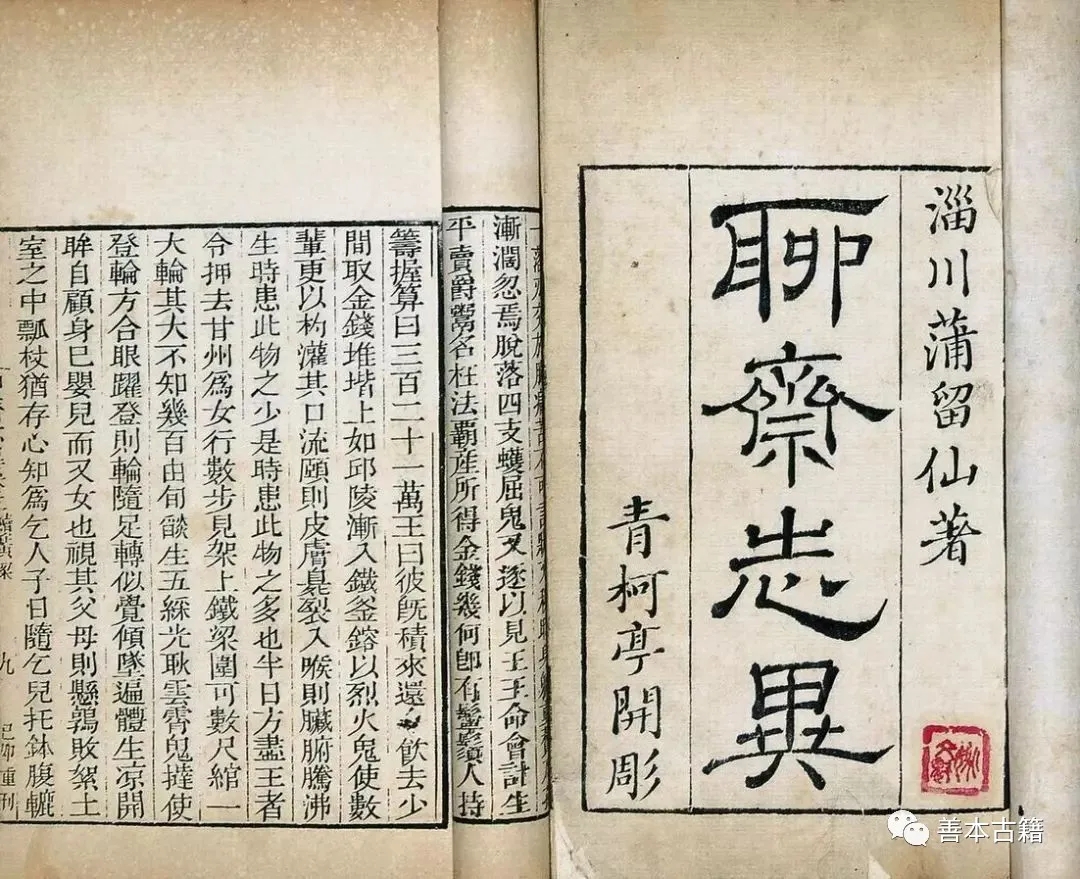 淄川蒲留仙著
聊齋志異
青柯亭開彫
漸濶忽焉脫落四支蠖屈鬼又逐以見王王命會計生
平賣爵鬻名枉法霸產所得金錢幾何卽有鬚人持
籌握算曰三百二十一萬王曰彼旣積來還飲去少
間取金錢堆堦上如邱陵漸入鐵釜鎔以烈火鬼使數
輩更以杓灌其口流頤則皮膚臭裂入喉則臟腑騰沸
生時患此物之少是時患此物之多也半日方盡王者
令押去甘州爲女行數步見架上鐵梁圍可數尺綰一
大輪其大不知幾百由旬燄生五綵光耿雲霄鬼撻使
登輪方合眼躍登則輪隨足轉似覺傾墜遍體生凉開
眸自顧身已嬰兒而又女也視其父母則懸鶉敗絮土
室之中瓢杖猶存心知爲乞人子日隨乞兒托鉢腹轆
九
善本古籍